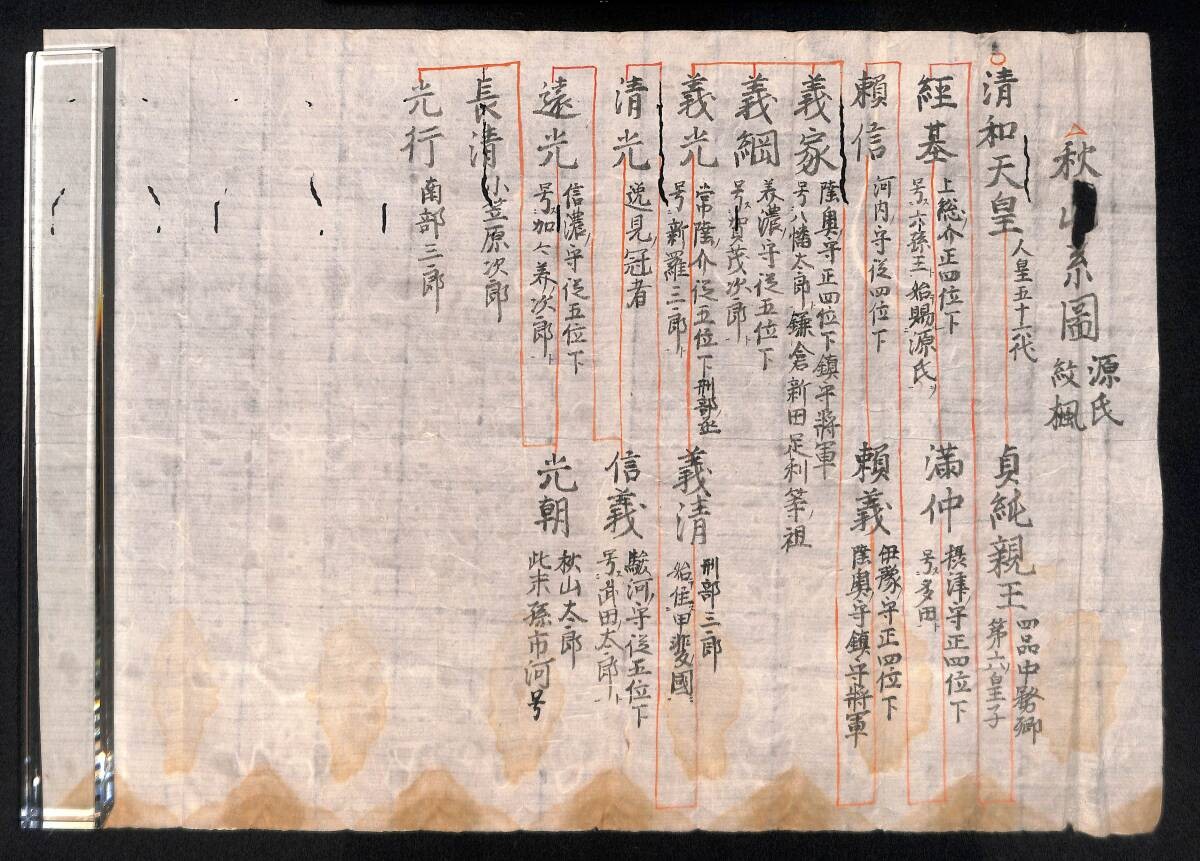 秋山系圖
源氏
紋楓
清和天皇
人皇五十六代
貞純親王
四品中務卿
第六皇子
經基
上総ノ介正四位下
号ス六孫王ト始賜源氏ヲ
滿仲
摂津ノ守正四位下
号ス多田ト
賴信
河内ノ守従四位下
賴義
伊豫ノ守正四位下
陸奥ノ守鎮守将軍
義家
陸奥ノ守正四位下鎮守將軍
号八幡太郎ト鎌倉新田足利等ノ祖
義綱
美濃ノ守従五位下
号ス加茂次郎ト
義光
常陸ノ介従五位下刑部丞
号ス新羅三郎ト
義清
刑部三郎
始テ住ス甲斐ノ國ニ
清光
逸見ノ冠者
信義
駿河ノ守従五位下
号ス武田ノ太郎ト
遠光
信濃ノ守従五位下
号ス加々美次郎ト
光朝
秋山太郎
此末孫市河号
長清
小笠原次郎
光行
南部三郎